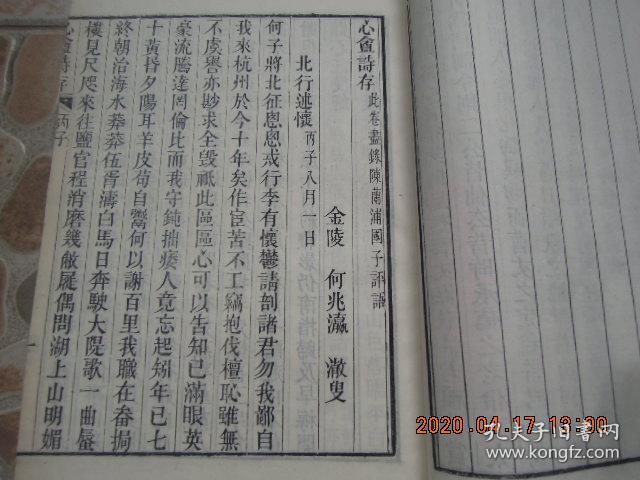 心盦詩存 此卷盡錄陳蘭浦國子評語
金陵 何兆瀛 澈叟
北行述懷 丙子八月一日
何子將北征恩恩戒行李有懷鬱請剖諸君勿我鄙自
我來杭州於今十年矣作宦苦不工竊抱伐檀恥雖無
不虞譽亦尟求全毀祇此區區心可以告知已滿眼英
豪流騰達罔倫比而我守鈍拙痿人竟忘起矧年已七
十黃昏夕陽耳羊皮苟自鬻何以謝百里我職在畚挶
終朝治海水莽莽伍胥濤白馬日奔駛大隄歌一曲蜃
樓見尺咫來往鹽官程消磨幾敝屣偶問湖上山明媚
心盦詩存 丙子 一
2020.04.17 13:00
孔夫子旧书网
www.kongfz.com